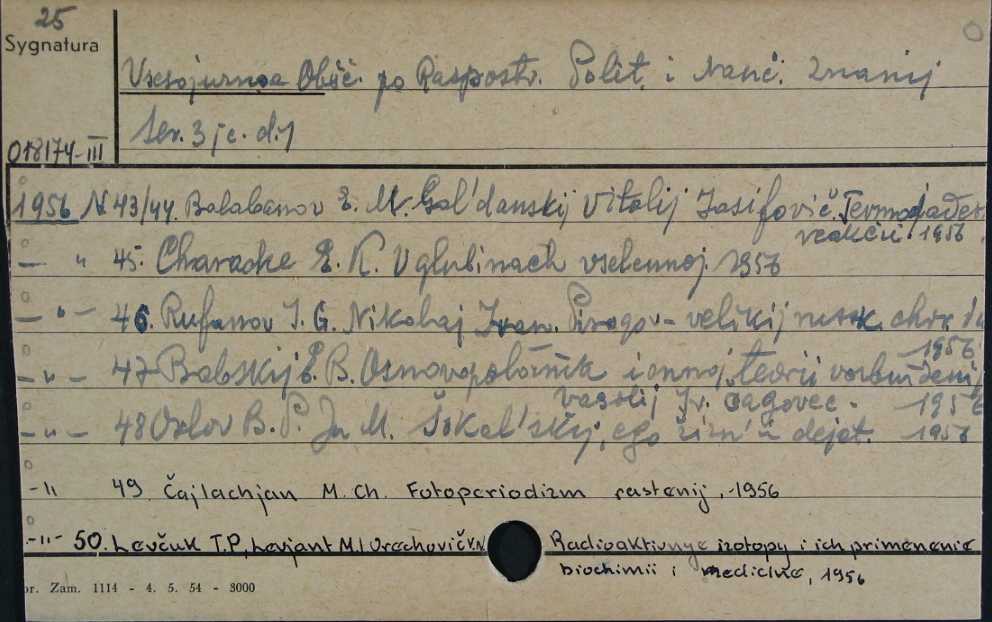 25
Sygnatura
Vsesojuznoe Obšč. po Rasprostr. Polit. i Nauč. Znanij
Ser. 3 je. d. 1
018174-III
1956 N 43/44. Balabanov E. M. Gol'danskij Vitalij Iosifovič. Termojader
reakcii. 1956
— " 45. Charadze E. K. V glubinach vselennoj. 1956
— " — 46. Rufanov I. G. Nikolaj Ivan. Pirogov - velikij russk. chir.
1956
— " — 47 Babskij E. B. Osnovopoložnik ionnoj teorii vozbuždenij
Vasilij Jr. Čagovec - 1956
— " — 48 Orlov B. P. Ju M. Šokal'skij, ego žizn' i dejat. 1956
- " 49 Čajlachjan M. Ch. Fotoperiodizm rastenij, 1956
- " - 50. Levčuk T.P., Levjant M.I Orechovič V.N Radioaktivnye izotopy i ich primenenie
biochimii i medicine, 1956
or. Zam. 1114 - 4. 5. 54 - 3000